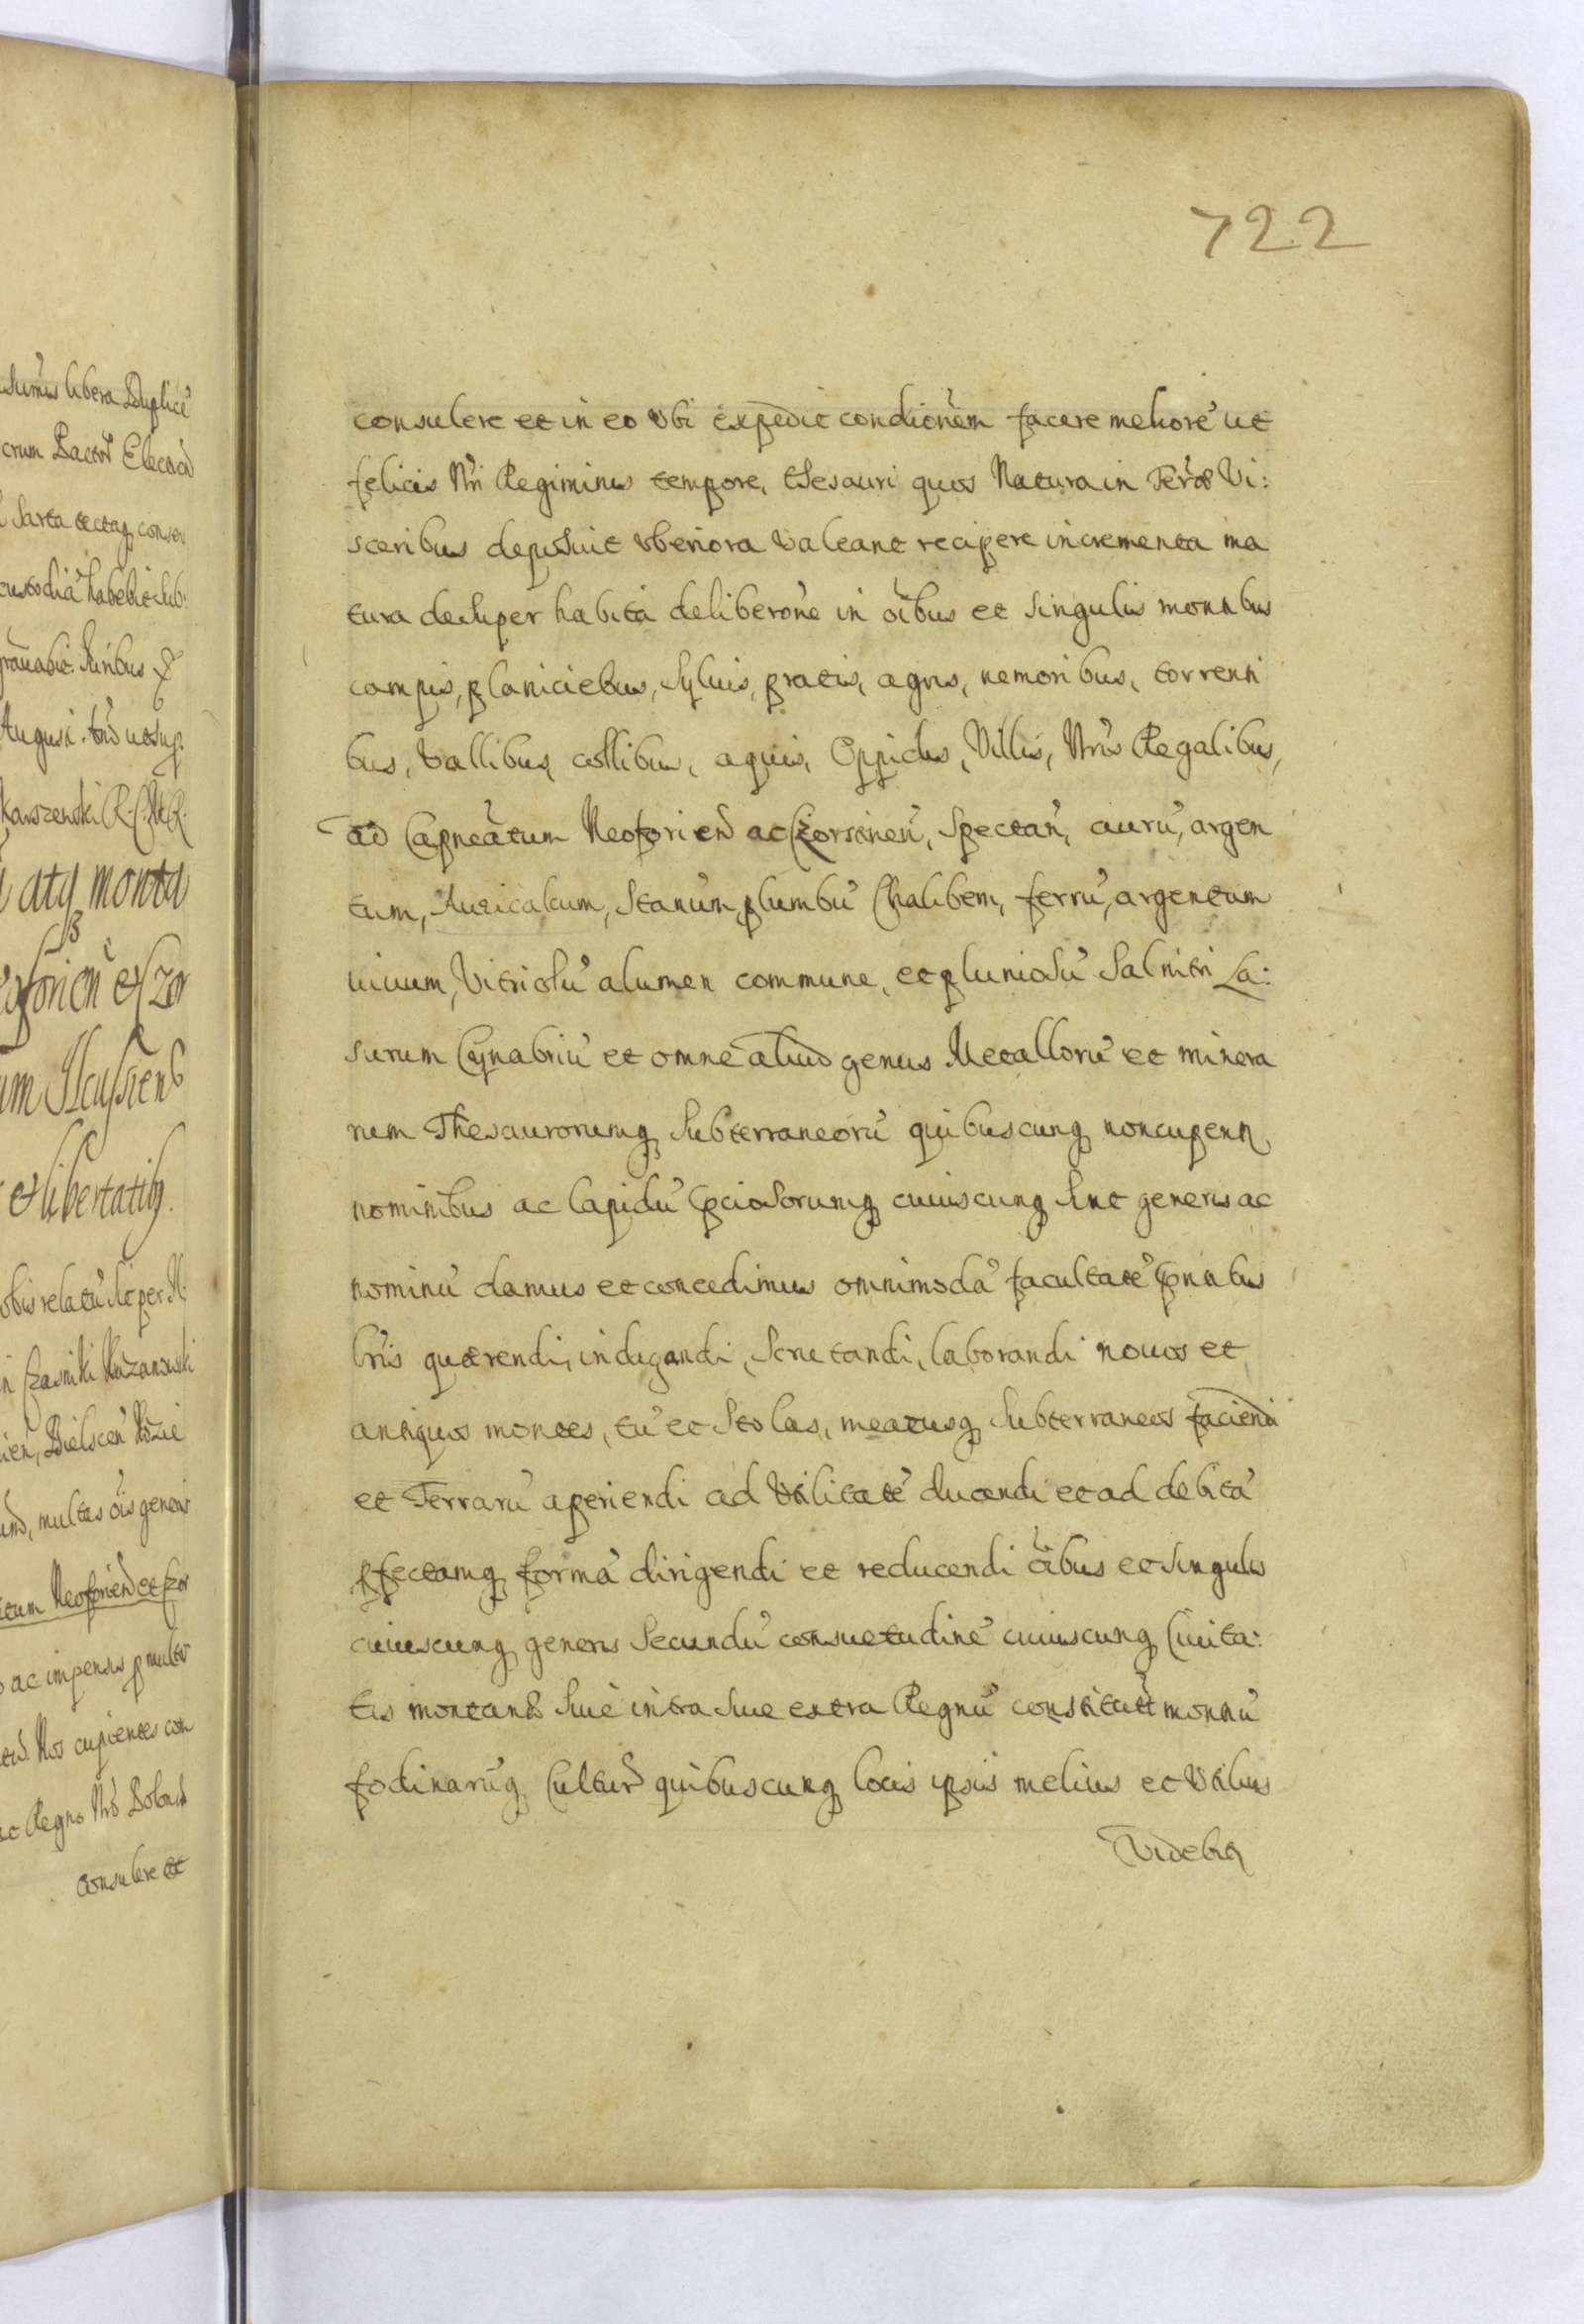 sumus libera Duplice
crum Pactor Electio
sarta tectaq conser
custodia habebit sub:
Augusti.
atq monta
et Czor
et libertatibq.
obis relatu sit per
multas ois generis
itum Neoforien et Czor
ac impensis
Nos cupientes con
ac Regno Nro Polon
consulere et
722
consulere et in eo vbi expedit condicionem facere meliore ut
felicis Nri Regiminis tempore, thesauri quos Natura in Terrae Vi:
sceribus deposuit vberiora valeant recipere incrementa ma
tura desuper habita deliberone in oibus et singulis montibus
campis, planiciebus, syluis, pratis, agris, nemoribus, torrenti
bus, vallibus, collibus, aquis, Oppidis, Villis, Nris Regalibus,
ad Capneatum Neoforien ac Czorstinen, spectan, auru, argen
tum, Auricalcum, stanum, plumbu Chalibem, ferru, argentum
uiuum, Vitriolu alumen commune, et plumosu salnitri La:
surum Cynabriu et omne aliud genus Metalloru et minera
rum Thesaurorumq subterraneoru quibuscunq noncupent
nominibus ac lapidu pciosorumq cuiuscunq sint generis ac
nominu damus et concedimus omnimoda facultate pntibus
lris quaerendi, indagandi, scrutandi, laborandi nouos et
antiquos montes, tu et stolas, meatusq subterraneos faciendi
et Terraru aperiendi ad vtilitate ducendi et ad debita
pfectamq forma dirigendi et reducendi oibus et singulis
cuiuscunq generis secundu consuetudine cuiuscunq Ciuita:
tis montanae siue intra siue extra Regnu constitut montiu
fodinaruq Cultur quibuscunq locis ipsis melius et vtilius
Videbit